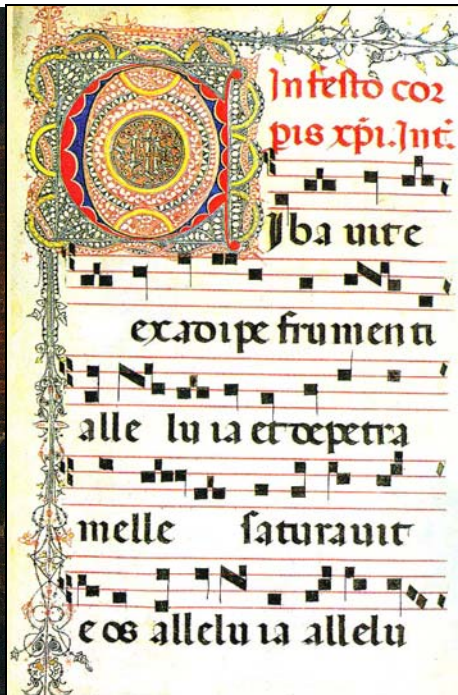 In festo cor
pis xp̄i. Int.
Ciba uite
ex adipe frumenti
alle lu ia et de petra
melle saturauit
e os allelu ia allelu